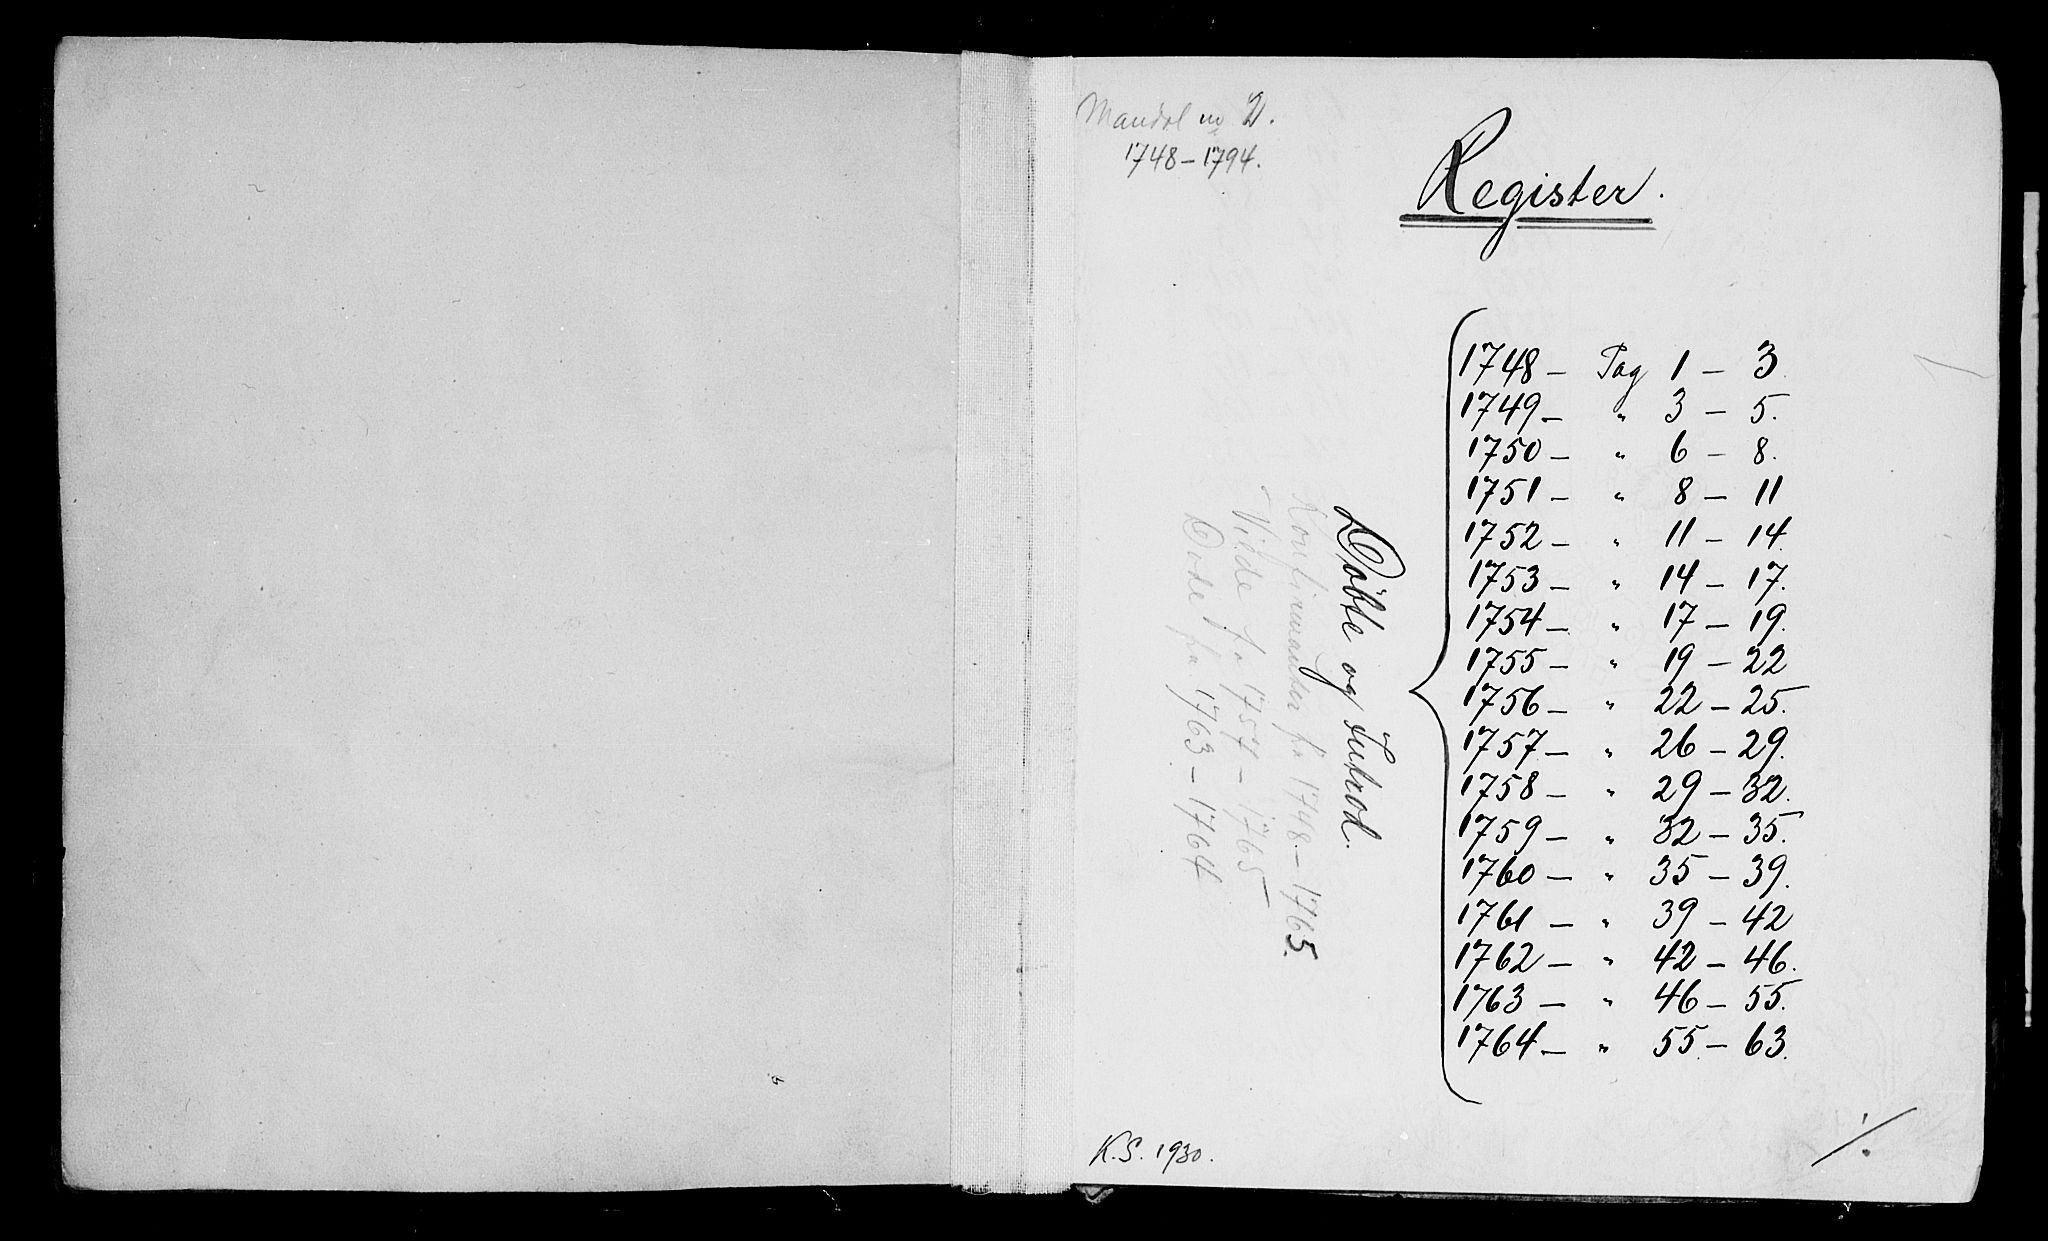 Mandal nr 2.
1748-1794.
Register.
Döbte og Introd.
Konfirmander fra 1748-1765.
Viede fra 1757-1765
Døde fra 1763-1764
1748 - Pag 1 - 3.
1749 - " 3 - 5.
1750 - " 6 - 8.
1751 - " 8 - 11
1752 - " 11 - 14.
1753 - " 14 - 17.
1754 - " 17 - 19.
1755 - " 19 - 22
1756 - " 22 - 25.
1757 - " 26 - 29.
1758 - " 29 - 32.
1759 - " 32 - 35.
1760 - " 35 - 39.
1761 - " 39 - 42
1762 - " 42 - 46.
1763 - " 46 - 55.
1764 - " 55 - 63.
K.S. 1930.
./.